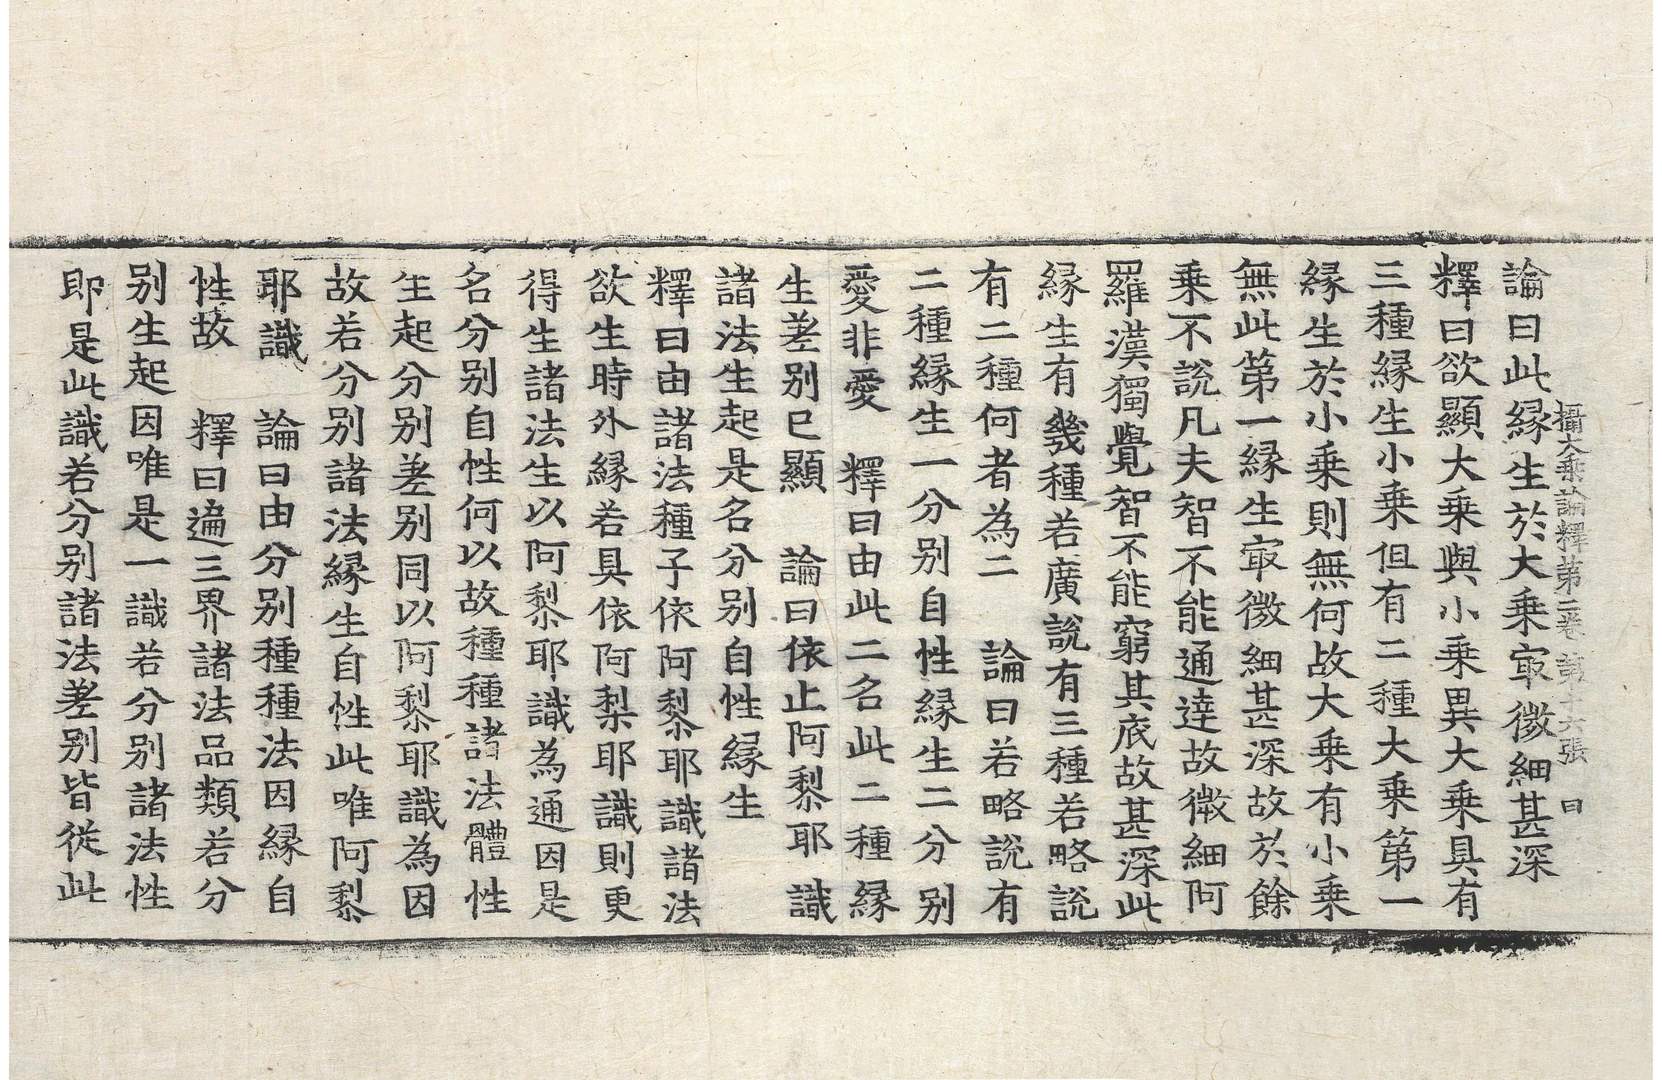 攝大乘論釋第二卷 第十六張 曰
論曰此縁生於大乘㝡微細甚深
釋曰欲顯大乘與小乘異大乘具有
三種縁生小乘但有二種大乘第一
縁生於小乘則無何故大乘有小乘
無此第一縁生㝡微細甚深故於餘
乗不說凡夫智不能通逹故微細阿
羅漢獨覺智不能窮其底故甚深此
縁生有幾種若廣說有三種若略說
有二種何者為二 論曰若略說有
二種縁生一分别自性縁生二分别
愛非愛 釋曰由此二名此二種縁
生差别已顯 論曰依止阿梨耶識
諸法生起是名分别自性縁生
釋曰由諸法種子依阿黎耶識諸法
欲生時外縁若具依阿梨耶識則更
得生諸法生以阿黎耶識為通因是
名分别自性何以故種種諸法體性
生起分别差别同以阿黎耶識為因
故若分别諸法縁生自性此唯阿黎
耶識 論曰由分别種種法因縁自
性故 釋曰遍三界諸法品類若分
别生起因唯是一識若分别諸法性
即是此識若分别諸法差别皆從此